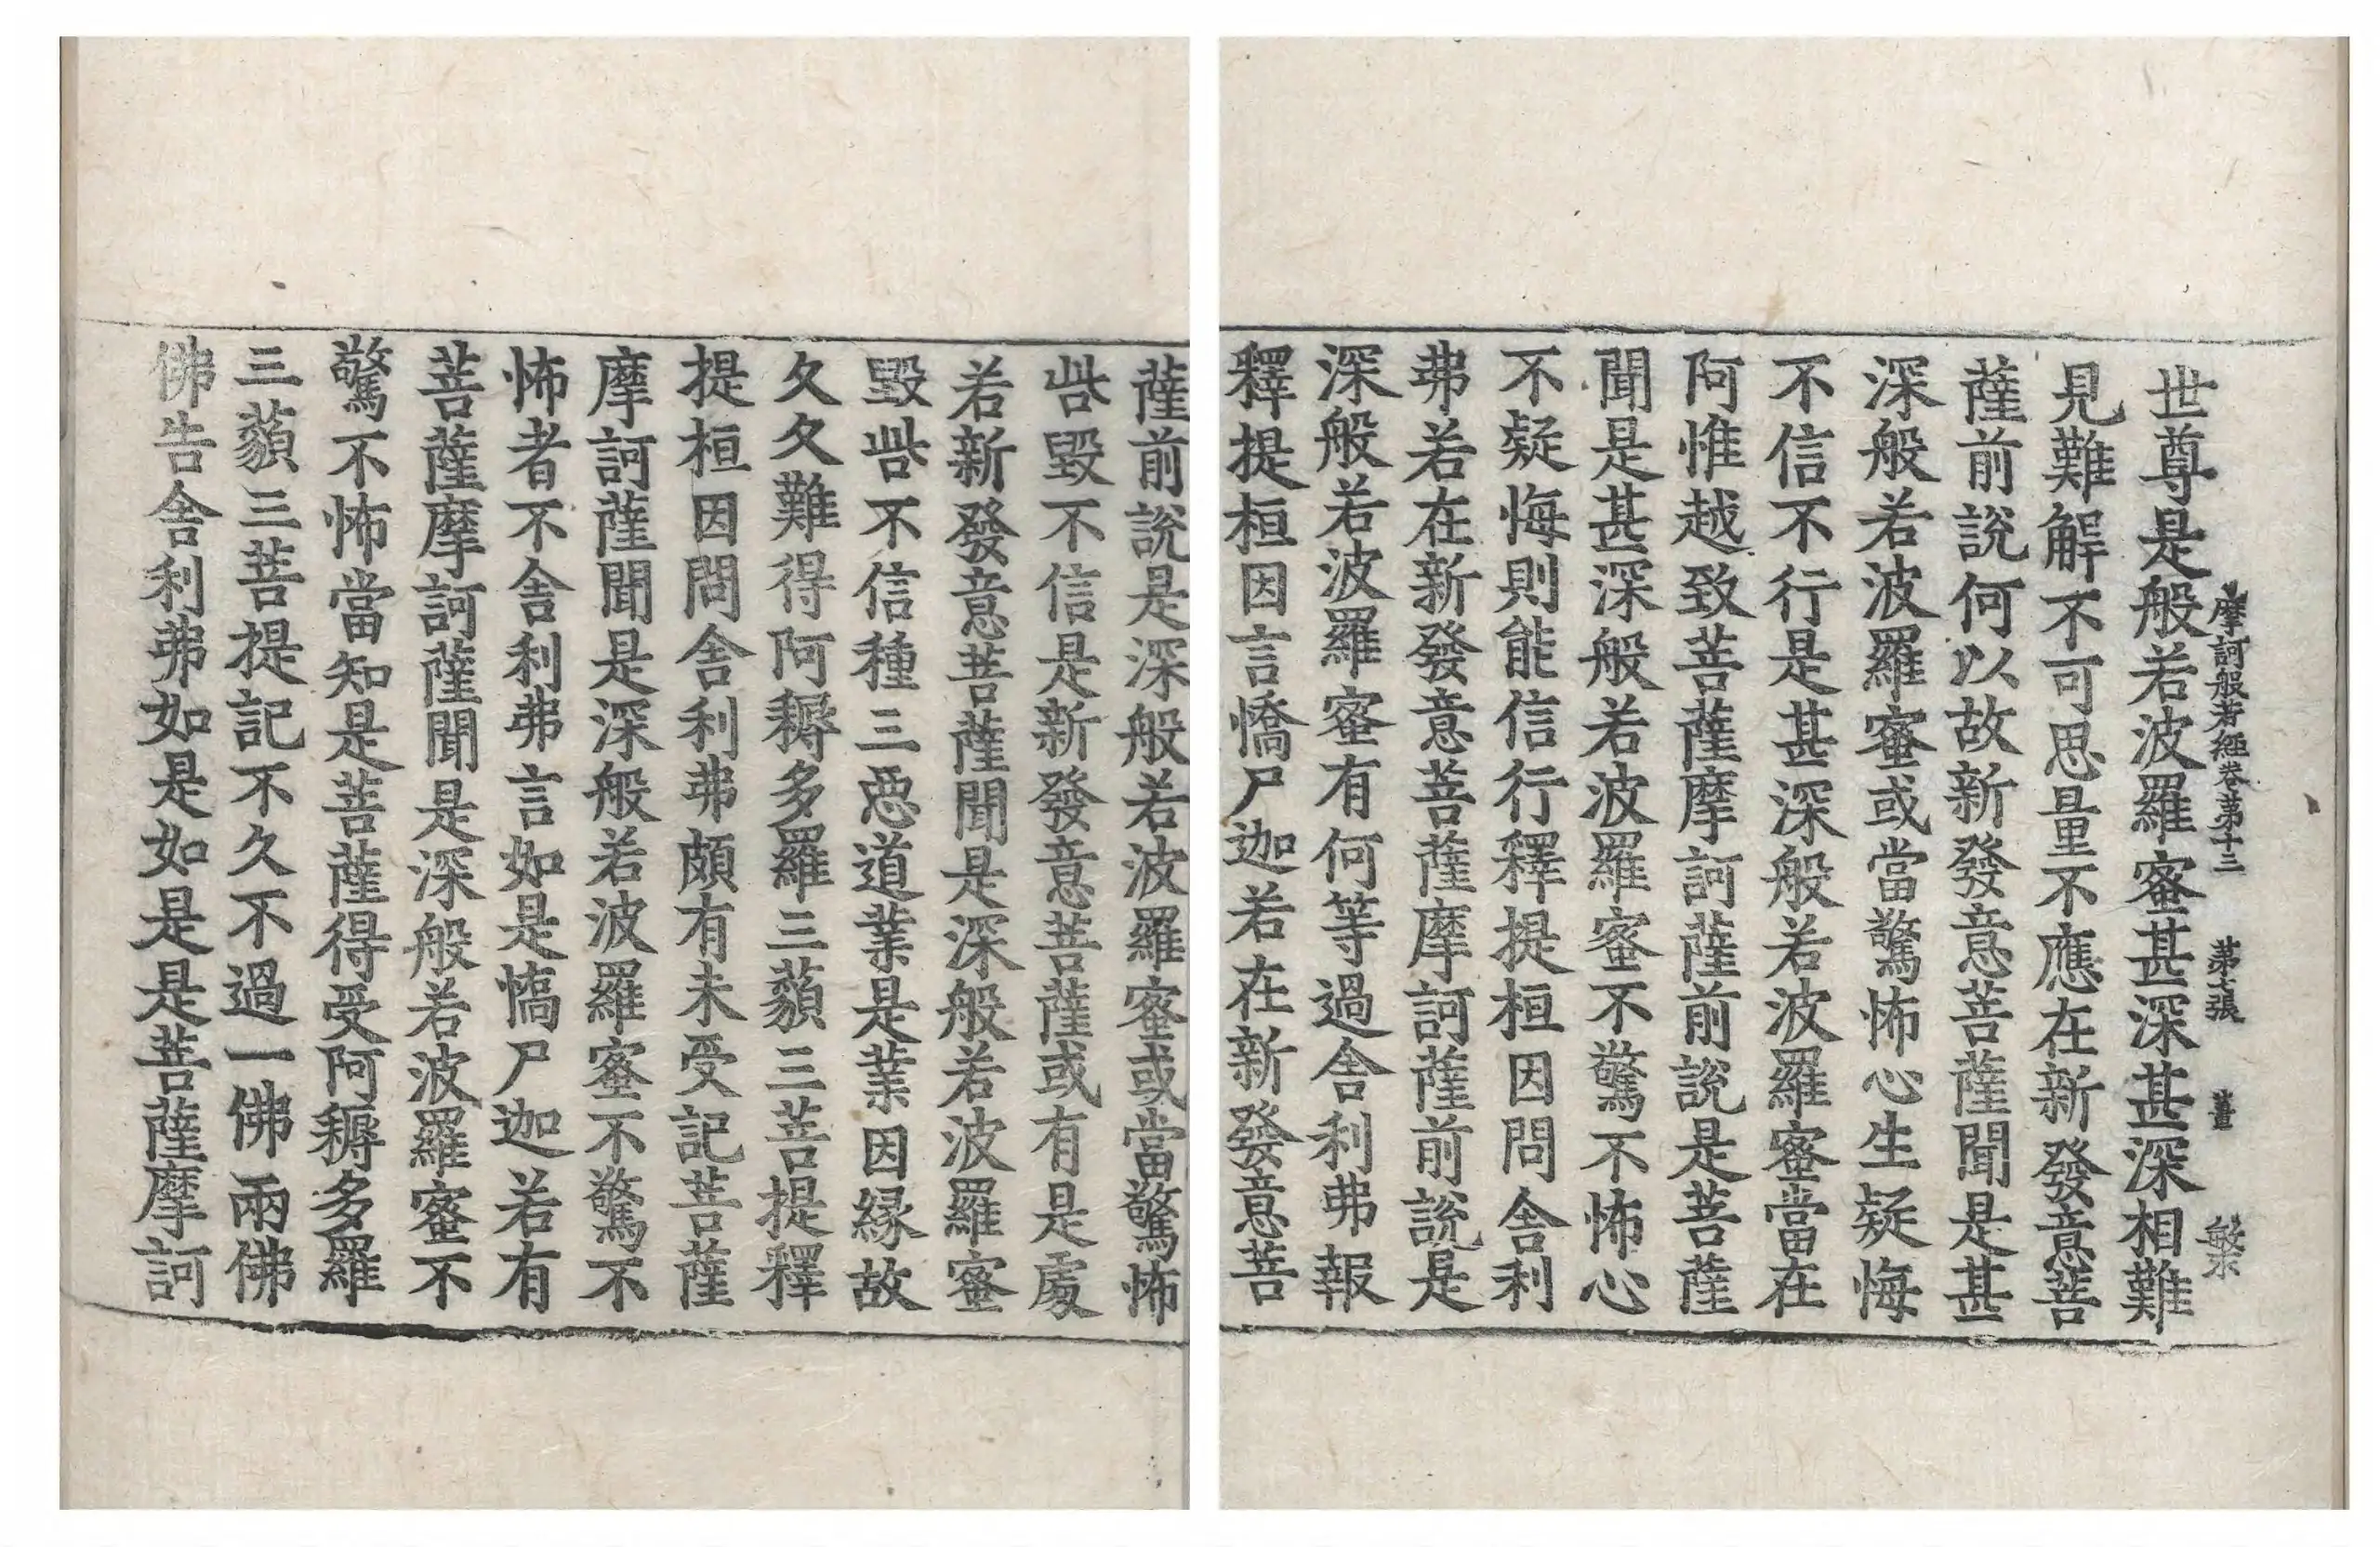 摩訶般若經卷第十三　第七張　畫　𣫍
世尊是般若波羅蜜甚深甚深相難
見難解不可思量不應在新發意菩
薩前說何以故新發意菩薩聞是甚
深般若波羅蜜或當驚怖心生疑悔
不信不行是甚深般若波羅蜜當在
阿惟越致菩薩摩訶薩前說是菩薩
聞是甚深般若波羅蜜不驚不怖心
不疑悔則能信行釋提桓因問舍利
弗若在新發意菩薩摩訶薩前說是
深般若波羅蜜有何等過舍利弗報
釋提桓因言憍尸迦若在新發意菩
薩前說是深般若波羅蜜或當驚怖
呰毀不信是新發意菩薩或有是處
若新發意菩薩聞是深般若波羅蜜
毀呰不信種三惡道業是業因緣故
久久難得阿耨多羅三藐三菩提釋
提桓因問舍利弗頗有未受記菩薩
摩訶薩聞是深般若波羅蜜不驚不
怖者不舍利弗言如是憍尸迦若有
菩薩摩訶薩聞是深般若波羅蜜不
驚不怖當知是菩薩得受阿耨多羅
三藐三菩提記不久不過一佛兩佛
佛告舍利弗如是如是是菩薩摩訶